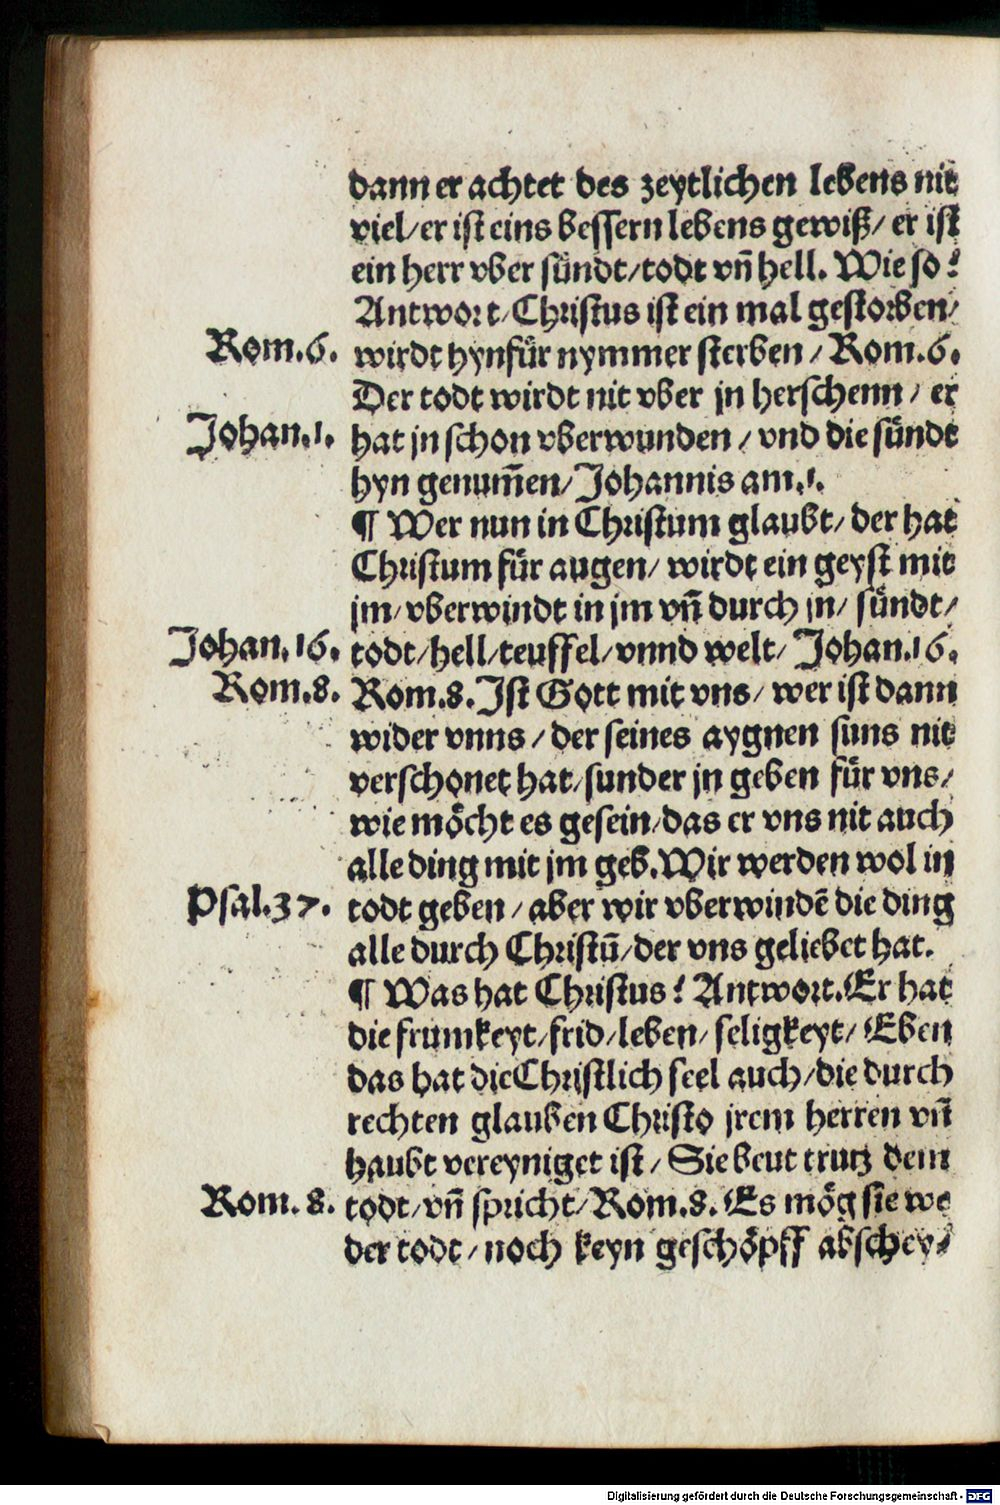 dann er achtet des zeytlichen lebens nit
viel/ er ist eins bessern lebens gewiß/ er ist
ein herr vber sündt/ todt vn̄ hell. Wie so?
Antwort/ Christus ist ein mal gestorben/
Rom.6. wirdt hynfür nymmer sterben/ Rom.6.
Der todt wirdt nit vber jn herschenn/ er
Johan.1. hat jn schon vberwunden/ vnd die sündt
hyn genum̄en/ Johannis am.1.
¶ Wer nun in Christum glaubt/ der hat
Christum für augen/ wirdt ein geyst mit
jm/ vberwindt in jm vn̄ durch jn/ sündt/
Johan.16. todt/ hell/ teuffel/ vnnd welt/ Johan.16.
Rom.8. Rom.8. Ist Gott mit vns/ wer ist dann
wider vnns/ der seines aygnen suns nit
verschonet hat/ sunder jn geben für vns/
wie möcht es gesein/ das er vns nit auch
alle ding mit jm geb. Wir werden wol in
Psal.37. todt geben/ aber wir vberwindē die ding
alle durch Christū/ der vns geliebet hat.
¶ Was hat Christus? Antwort. Er hat
die frumkeyt/ frid/ leben/ seligkeyt/ Eben
das hat die Christlich seel auch/ die durch
rechten glauben Christo jrem herren vn̄
haubt vereyniget ist/ Sie beut trutz dem
Rom.8. todt/ vn̄ spricht/ Rom.8. Es mög sie we
der todt/ noch keyn geschöpff abschey⸗
Digitalisierung gefördert durch die Deutsche Forschungsgemeinschaft - DFG